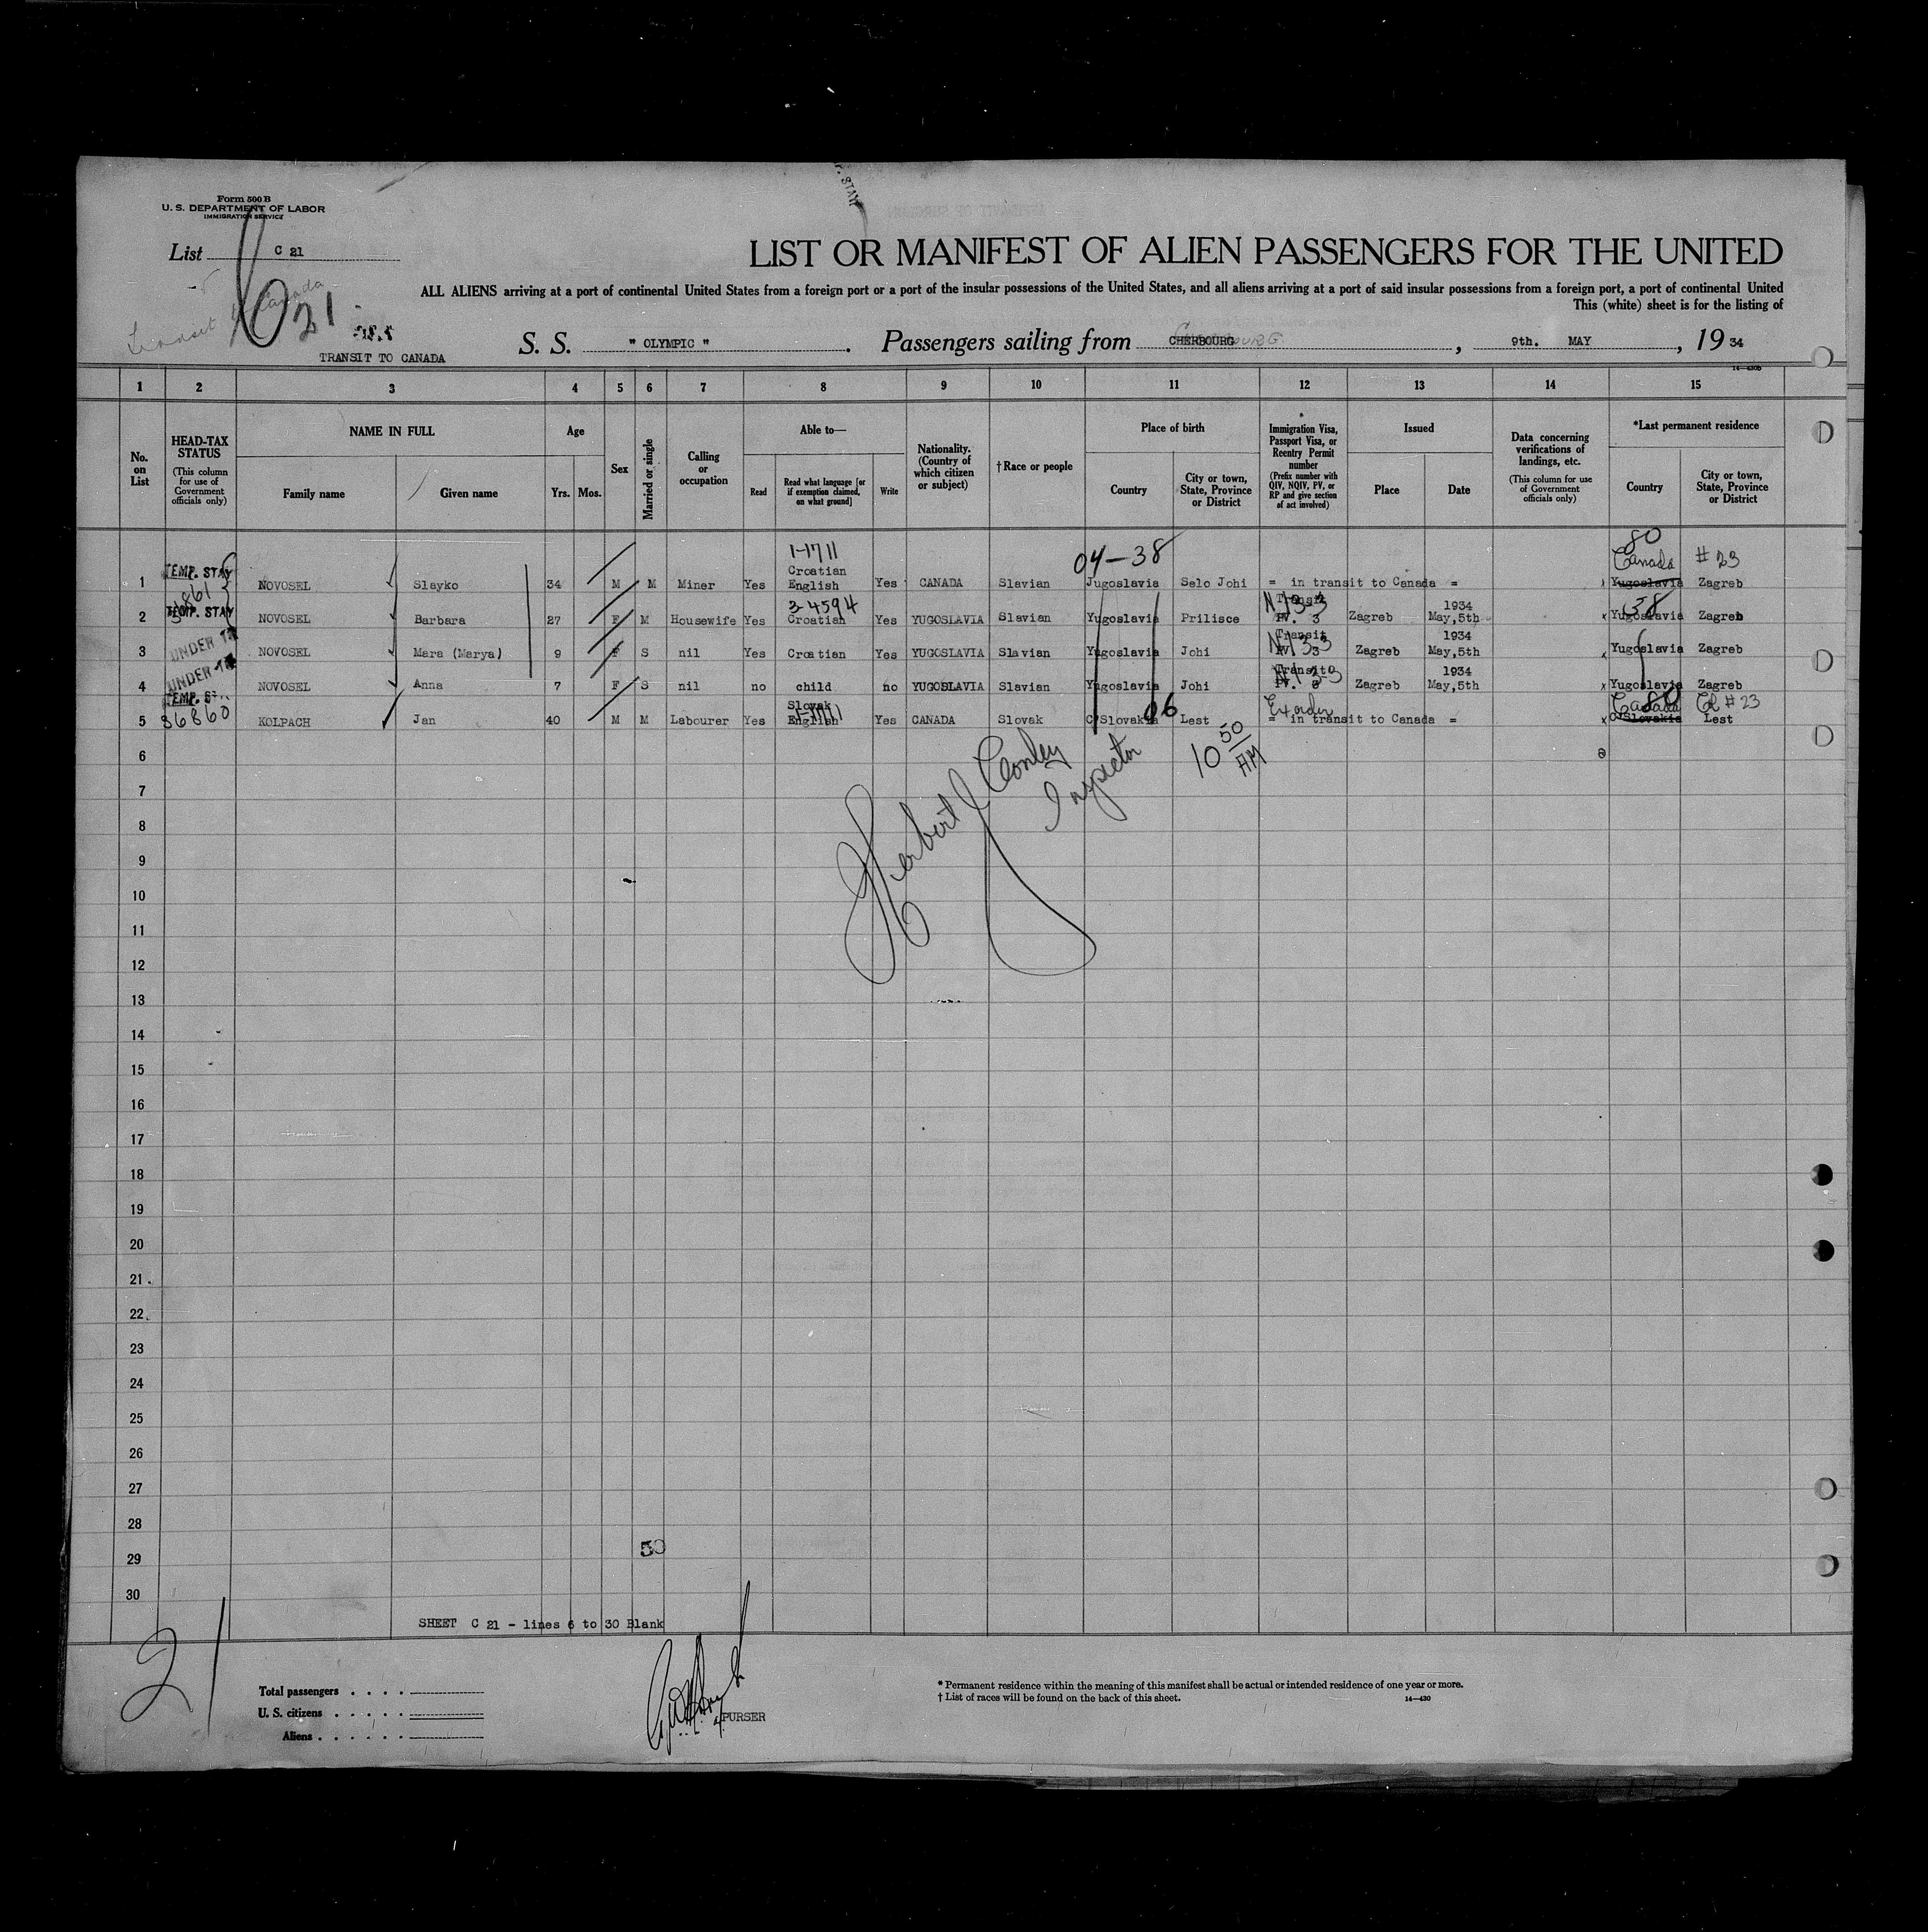 Form 500 B
U. S. DEPARTMENT OF LABOR
IMMIGRATION SERVICE
List C 21
21
TRANSIT TO CANADA
LIST OR MANIFEST OF ALIEN PASSENGERS FOR THE UNITED
ALL ALIENS arriving at a port of continental United States from a foreign port or a port of the insular possessions of the United States, and all aliens arriving at a port of said insular possessions from a foreign port, a port of continental United
This (white) sheet is for the listing of
S. S. " OLYMPIC ". Passengers sailing from CHERBOURG, 9th. MAY, 19 34
1 2 3 4 5 6 7 8 9 10 11 12 13 14 15
No. on List
HEAD-TAX STATUS (This column for use of Government officials only)
NAME IN FULL
Family name Given name
Age
Yrs. Mos.
Sex
Married or single
Calling or occupation
Able to—
Read
Read what language [or if exemption claimed, on what ground]
Write
Nationality. (Country of which citizen or subject)
†Race or people
Place of birth
Country
City or town, State, Province or District
* Immigration Visa, Passport Visa, or Reentry Permit number (Prefix number with QIV, NQIV, PV, or RP and give section of act involved)
Issued
Place Date
Data concerning verifications of landings, etc. (This column for use of Government officials only)
*Last permanent residence
Country
City or town, State, Province or District
1-1711 04-38 80
TEMP. STAY Croatian Canada #23
1 NOVOSEL Slayko 34 M M Miner Yes English Yes CANADA Slavian Jugoslavia Selo Johi = in transit to Canada = Yugoslavia Zagreb
TEMP. STAY 3-4594 Transit 1934 38
2 NOVOSEL Barbara 27 F M Housewife Yes Croatian Yes YUGOSLAVIA Slavian Yugoslavia Prilisce PV. 3 Zagreb May,5th x Yugoslavia Zagreb
UNDER Transit 1934
3 NOVOSEL Mara (Marya) 9 F S nil Yes Croatian Yes YUGOSLAVIA Slavian Yugoslavia Johi 3 Zagreb May,5th x Yugoslavia Zagreb
UNDER Transit 1934
4 NOVOSEL Anna 7 F S nil no child no YUGOSLAVIA Slavian Yugoslavia Johi PV. 3 Zagreb May,5th x Yugoslavia Zagreb
TEMP. Slovak 06 Canada 80 #23
86860
5 KOLPACH Jan 40 M M Labourer Yes English Yes CANADA Slovak C/Slovakia Lest = in transit to Canada = x C/Slovakia Lest
6
7
8
9
10
11
12
13
14
15
16
17
18
19
20
21
22
23
24
25
26
27
28
29
30
Herbert J Conley
Inspector
10 50 AM
50
SHEET C 21 - lines 6 to 30 Blank
21
Total passengers . . . .
U. S. citizens . . . . .
Aliens . . . . . .
PURSER
* Permanent residence within the meaning of this manifest shall be actual or intended residence of one year or more.
† List of races will be found on the back of this sheet.
14—430